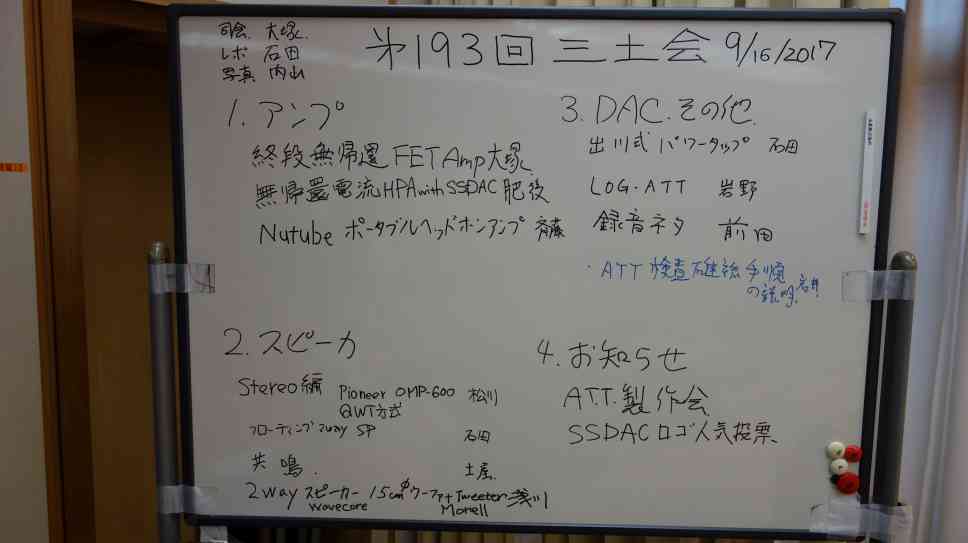 司会 大塚
レポ 石田
写真 内山
第193回 三土会 9/16/2017
1. アンプ
終段無帰還 FET Amp 大塚
無帰還電流HPA with SSDAC 肥後
Nutube ポータブルヘッドホンアンプ 斉藤
2. スピーカ
Stereo編 Pioneer OMP-600 松川
QWT方式
フローティング 2way SP 石田
共鳴. 土屋
2way スピーカー 15cmφウーファ+Tweeter 浅川
Wavecore Morell
3. DAC. その他.
出川式 パワータップ 石田
LOG・ATT 岩野
録音ネタ 前田
・ATT 検査 手順
の説明
4. お知らせ
ATT. 製作会
SSDAC ロゴ人気投票